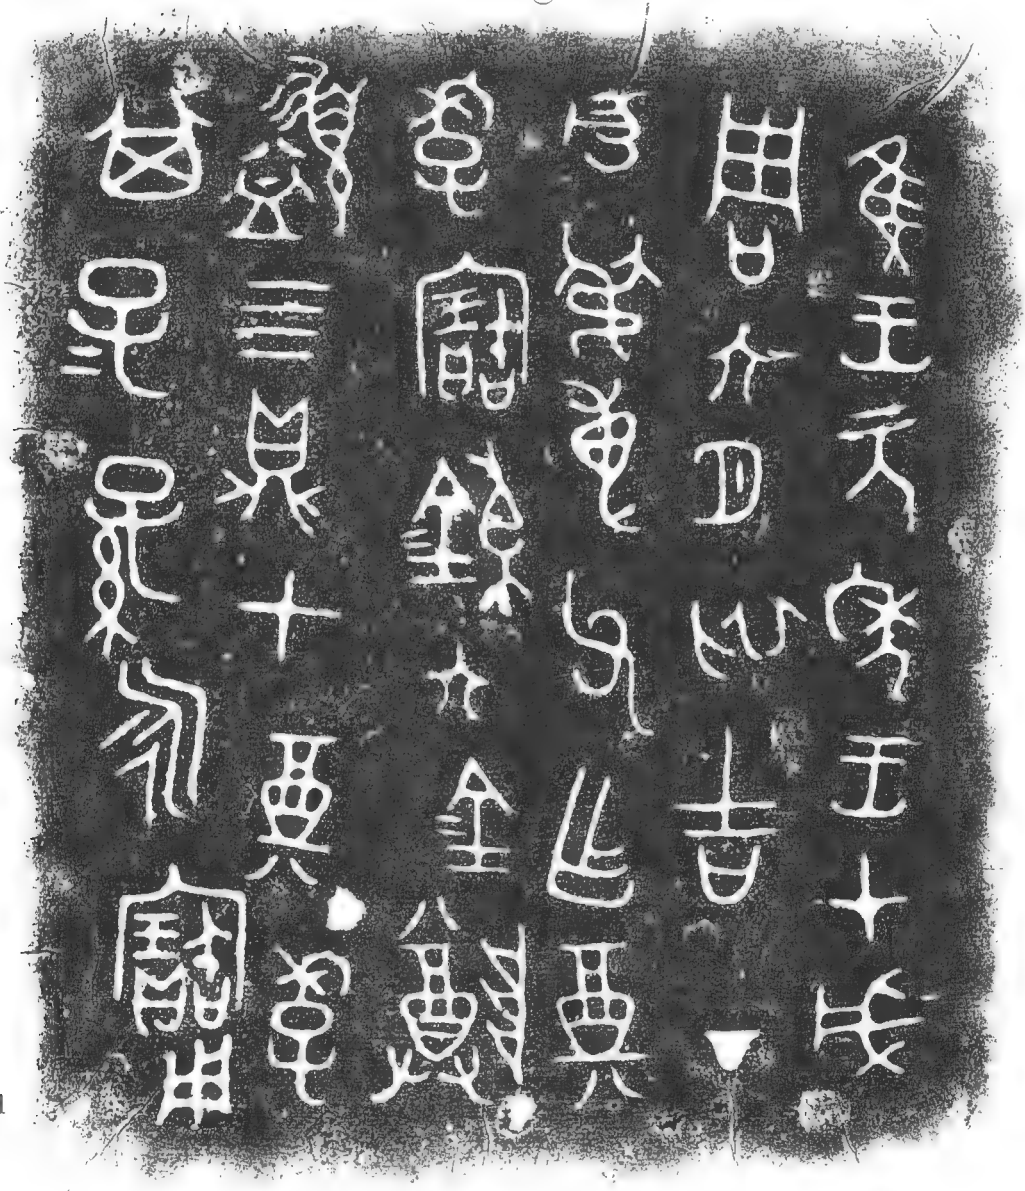 隹王元年王才成
周六月初吉丁
亥弔尃父乍奠
季寶鐘六金尊
盨四鼎七奠季
其子子孫孫永寶用